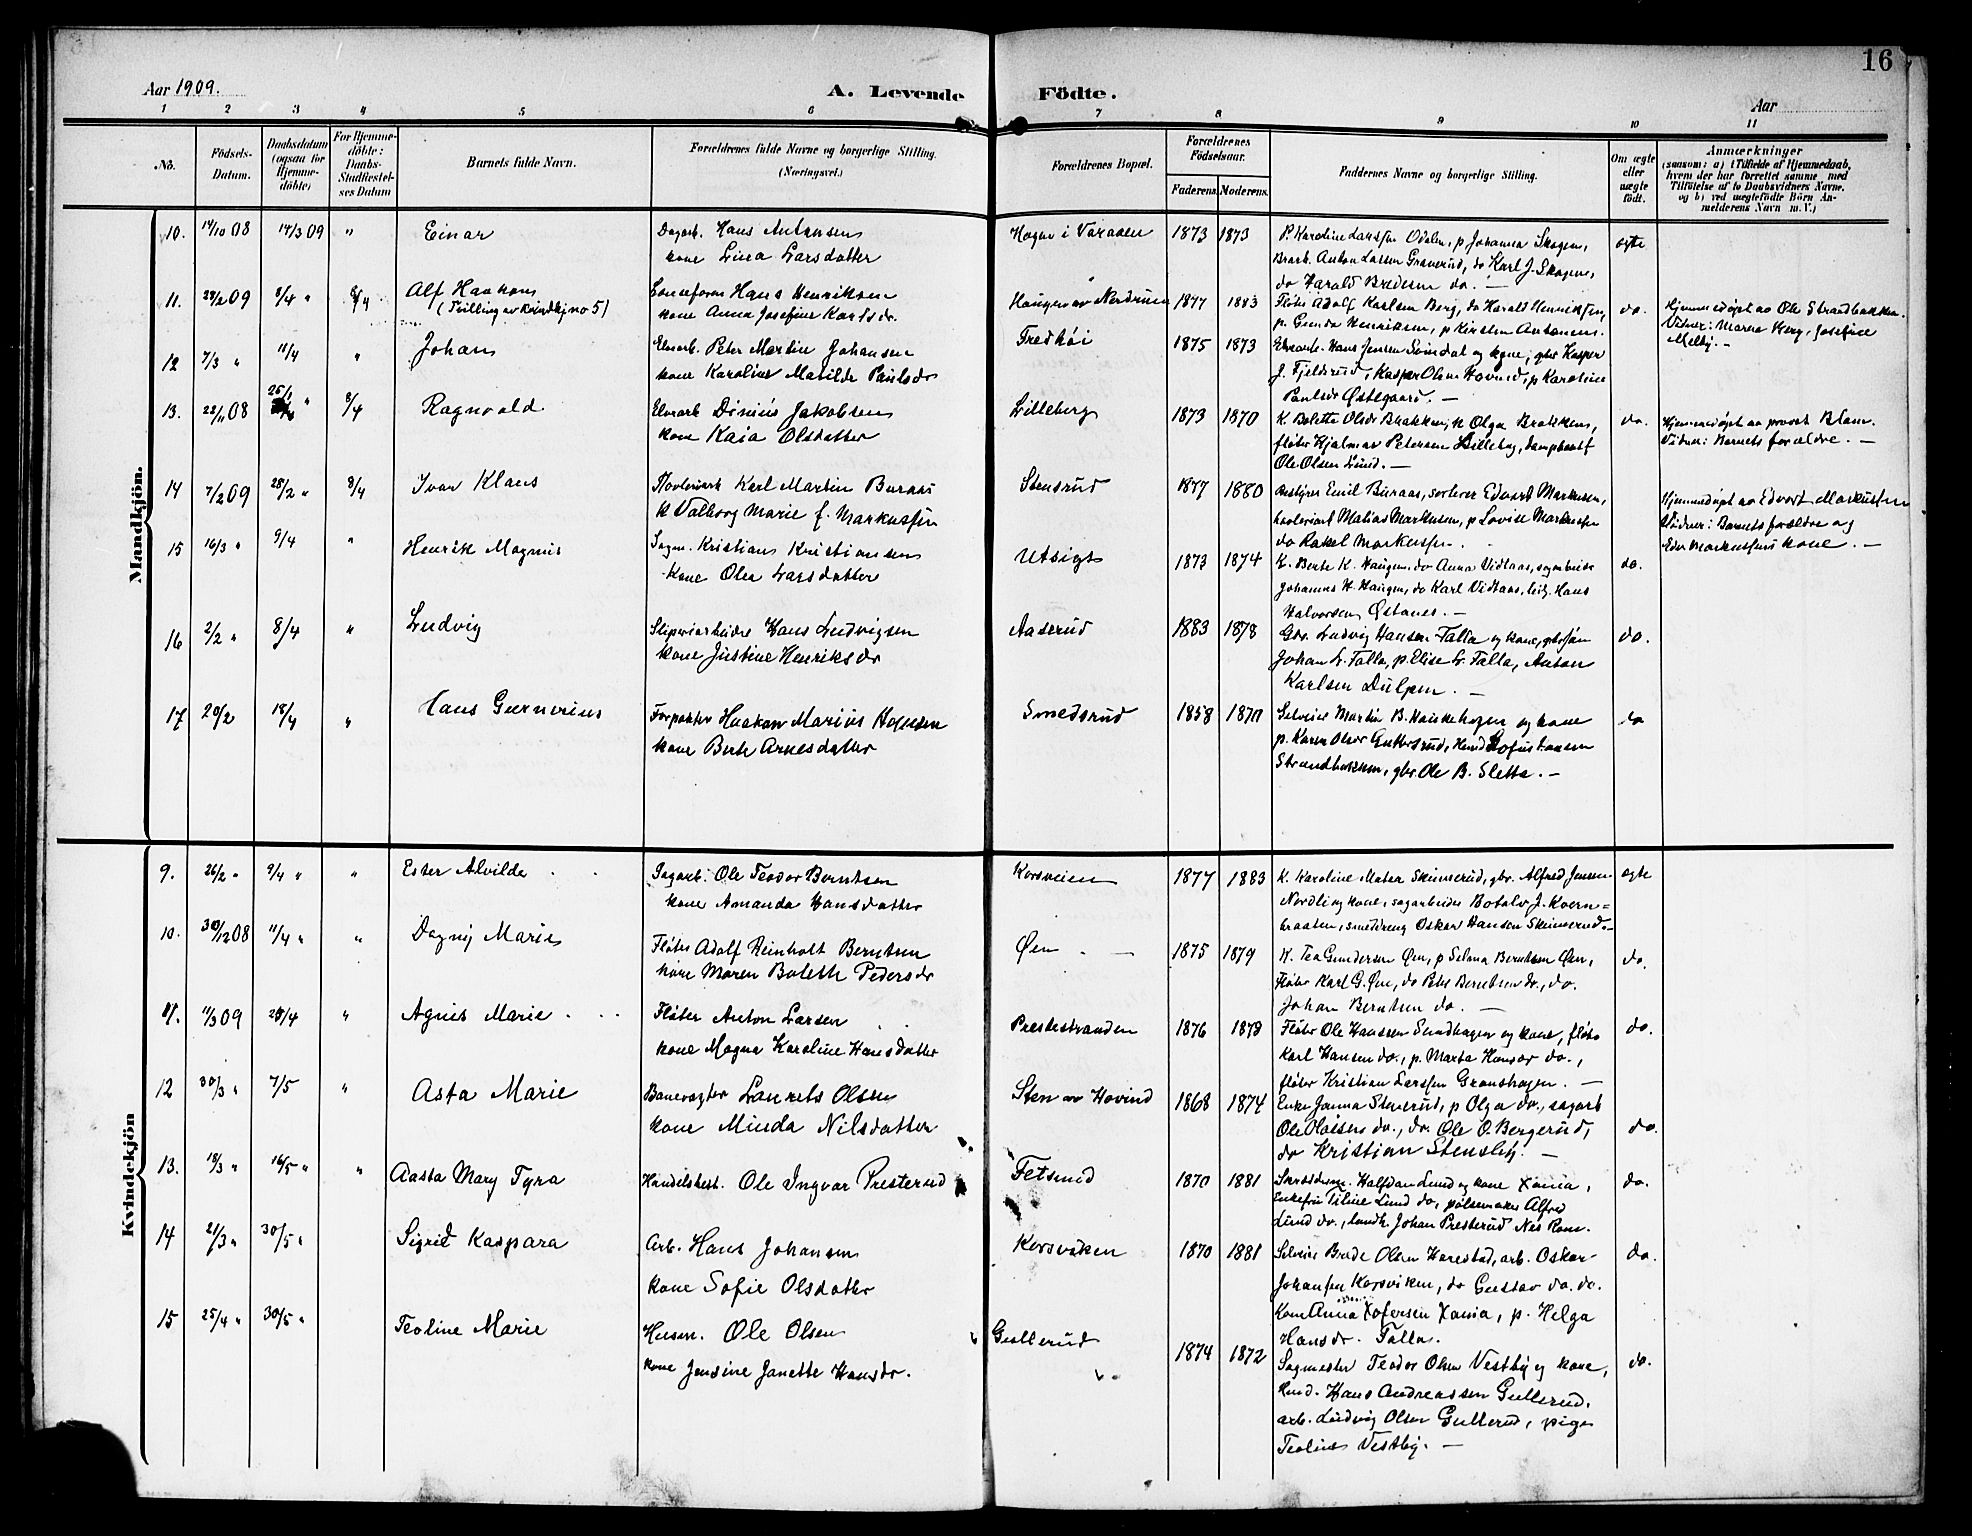 16
Aar 1909.
A. Levende Födte.
Aar
1 2 3 4 5 6 7 8 9 10 11
No.
Födsels-Datum.
Daabsdatum (ogsaa for Hjemme-döbte)
For Hjemme-döbte: Daabs-Stadfæstel-ses Datum
Barnets fulde Navn.
Forældrenes fulde Navne og borgerlige Stilling. (Næringsvei.)
Forældrenes Bopæl.
Forældrenes Födselsaar.
Faderens. Moderens.
Faddernes Navne og borgerlige Stilling.
Om ægte eller uægte födt.
Anmærkninger
(saasom: a) i Tilfælde af Hjemmedaab,
hvem der har forrettet samme med
Tilföielse af to Daabsvidners Navne,
og b) ved uægtefödte Börn An-
melderens Navn m. V.)
Mandkjön.
10. 14/10 08 14/3 09 " Einar Dagarb. Hans Antonsen 1873 1873 P. Karoline Larssen Odalen, p Johanna Skogen, ægte
kone Lina Larsdatter Brarb. Anton Larsen Granerud, do Karl J. Skogen,
do Harald Bredesen do. —
11. 28/2 09 8/4 " 8/4 Alf Haakon Hans Henriksen Haugen av Nordrum 1877 1883 Fløter Adolf Karlsen Berg, do Harald Henriksen, do. Hjemmedøpt av Ole Strandbakken.
(Tvilling av Kvindkj no 5) kone Anna Josefine Karlsdr. p. Gunda Henriksen, p Kirsten Antonsen. Vidner: Maren Berg, Josefine
Melby. —
12 7/3 " 11/4 " Johan Elvearb. Peter Martin Johansen Fredhøi 1875 1873 Elvearb. Hans Jensen Svindal og kone, gbr Kasper
kone Karoline Matilde Paulsdr J. Fjeldsrud, Kasper Olsen Hovind, p Karoline
Paulsdr Østegaard. —
13. 22/11 08 8/4 Ragnvald Elvearb Dinius Jakobsen Lilleberg 1873 1870 K. Bolette Olsdr Bhakken, p Olga Bratlikens, do. Hjemmedøpt av provst Blom.
kone Kaia Olsdatter fløter Hjalmar Petersen Lilleberg, Vidner: Barnets forældre. —
Ole Olsen Lund. —
14 7/2 09 28/2 " 8/4 Ivar Klaus Høvleriarb Karl Martin Buraas Stensrud 1877 1880 Bestyrer Emil Buraas, sorterer Edvart Markusen, Hjemmedøpt av Edvart Markussen
k Valborg Marie f. Markussen høvleriarb Matias Markusen, p Lovise Markussen Vidner: Barnets forældre og
do Rakel Markussen. . Edv Markussens kone. —
15 16/3 " 9/4 " Henrik Magnus Sagm. Kristian Kristiansen Utsigt 1873 1874 K. Berte K. Haugen, do Anna Vidtaas, sagarbeider do.
kone Olea Larsdatter Johannes K. Haugen, do Karl Vidtaas, Hans
Halvorsen Østanes. —
16 2/2 " 8/4 " Ludvig Sliperiarbeider Hans Ludvigsen Aaserud 1883 1878 Gbr. Ludvig Hansen Falla og kone, gbrsøn do.
kone Justine Henriksdr Johan L. Falla, p. Elise L. Falla, Anton
Karlsen Dulpen. —
17 20/2 18/4 " Hans Gunerius Forpakter Haakon Marius Hansen Smedsrud 1858 1870 Selveier Martin B. Kaiskehagen og kone do
kone Berte Arnesdatter p. Karen Olsdr Guttersrud,
Strandbakken, gbr. Ole B. Sletta. —
Kvindekjön
9. 26/2 " 9/4 " " Ester Alvilde Sagarb. Ole Teodor Berntsen Korsveien 1877 1883 K. Karoline Matea Skinnerud, gbr. Alfred Jensen ægte
kone Amanda Hansdatter Nordli og kone, sagarbeider Botolv J. Kvern=
braaten, smeddreng Oskar Hansen Skinnerud. —
10. 30/12 08 11/4 " " Dagny Marie Fløter Adolf Reinholt Berntsen Øen — 1875 1879 K. Tea Gundersen Øen, p Selma Berntsen Øen, do.
kone Maren Boleth Pedersdr Fløter Karl G. Øen, do Peter Berntsen do., do.
Johan Berntsen do. —
11. 11/3 09 25/4 " Agnes Marie Fløter Anton Larsen Prestestranden 1876 1879 Fløter Ole Hanssen Sundhagen og kone, fløter do.
kone Magna Karoline Hansdatter Karl Hansen do., p. Marta Hansdr do.,
fløter Kristian Larssen Granshagen. —
12 30/3 " 7/5 " Asta Marie Banevogter Laurits Olsen Sten av Hovind 1868 1874 Enke Janna Stenerud, p Olga do., sagarb
kone Minda Nilsdatter Ole Olaisen do., do. Ole O. Bergerud, do.
do Kristian Stensby. —
13. 18/3 " 16/5 " " Aasta Mary Tyra Handelsbest. Ole Ingvar Presterud Fetsund 1870 1881 Halfdan Lund og kone Xania, do.
Enkefru Tiline Lund do, pølsemaker Alfred
Lund do., landh. Johan Presterud Nes Rom.
14 21/3 " 30/5 " Sigrid Kaspara Arb. Hans Johansen Korsviken 1870 1881 Selveier Brede Olsen Harestad, arb. Oskar do.
kone Sofie Olsdatter Johansen Korsviken, do Gustav do. do.
Kone Anna Xofersen Xania, p. Helga
Hansdr. Falla.
15 25/4 " 30/5 " Teoline Marie Husm. Ole Olsen Gullerud 1874 1872 Sagmester Teodor Olsen Vestby og kone, do.
kone Jensine Janette Hansdr. Hans Andreassen Gullerud,
arb. Ludvig Olsen Gullerud, pige
Teoline Vestby. —